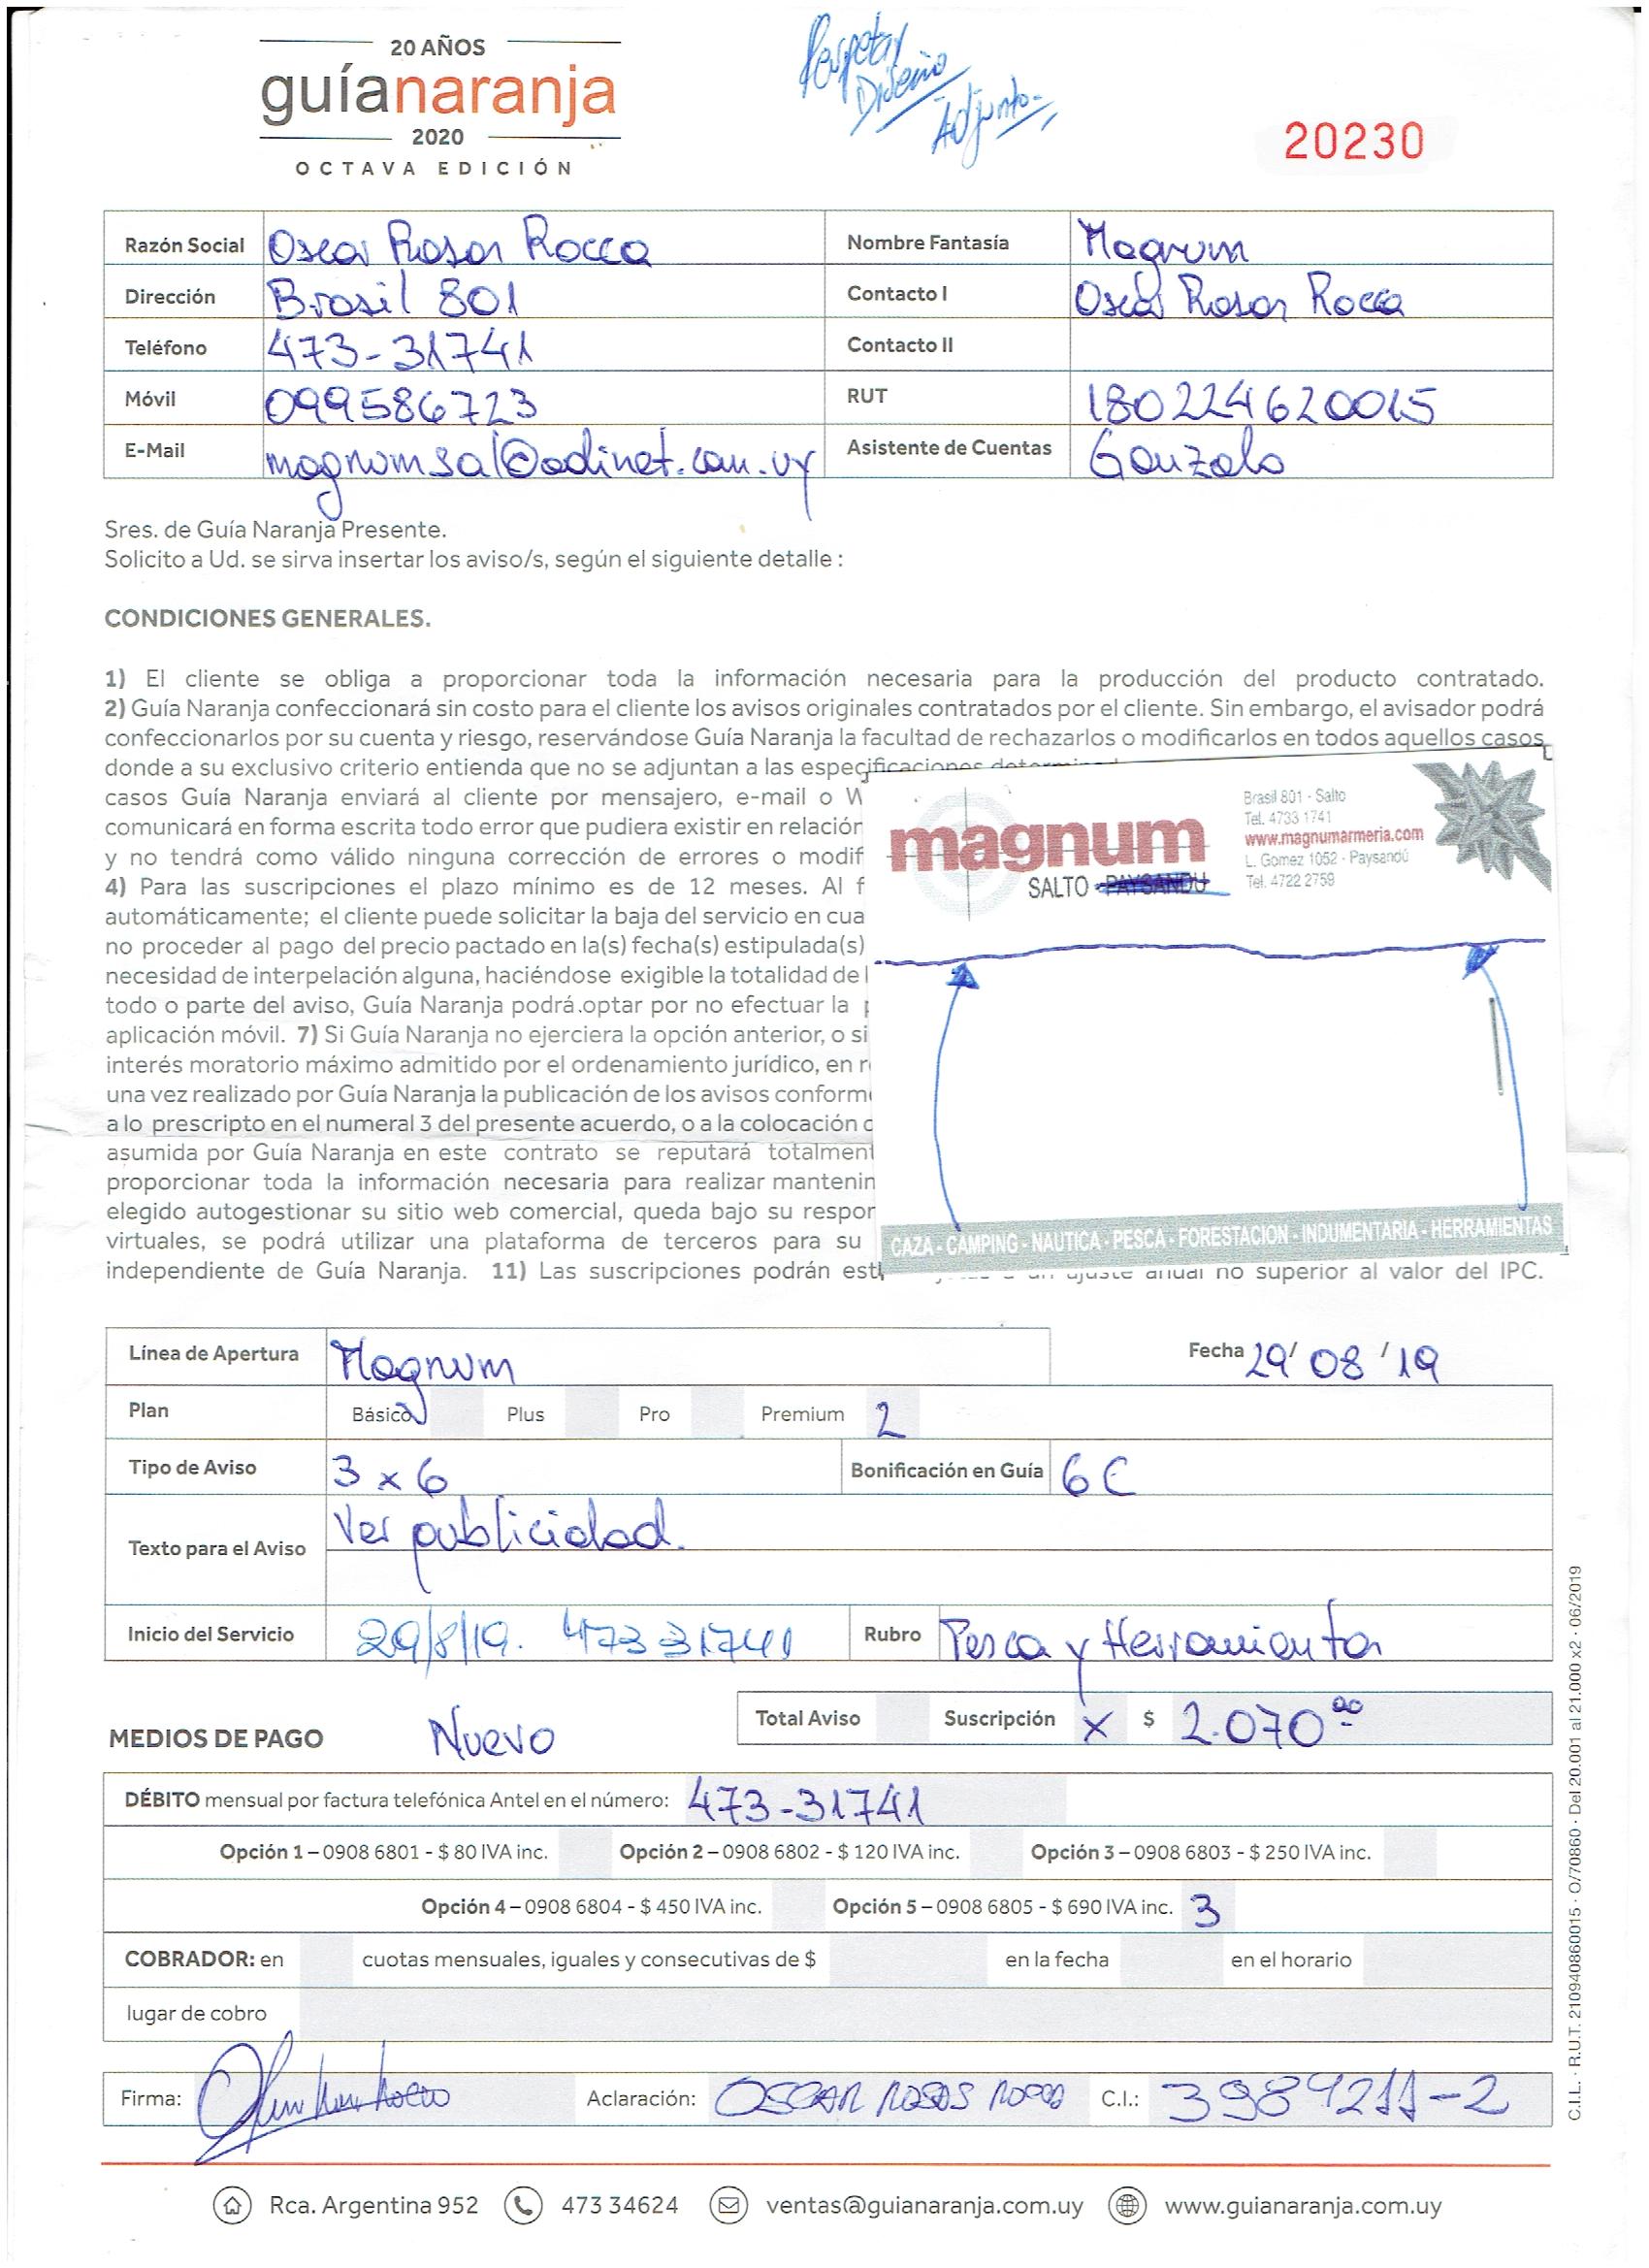 20 AÑOS
guíanaranja
2020
OCTAVA EDICIÓN
Respetar
Diseño
Adjunto.
20230
Razón Social Oscar Rosas Rocca Nombre Fantasía Magnum
Dirección Brasil 801 Contacto I Oscar Rosas Rocca
Teléfono 473-31741 Contacto II
Móvil 099586723 RUT 180224620015
E-Mail magnumsal@adinet.com.uy Asistente de Cuentas Gonzalo
Sres. de Guía Naranja Presente.
Solicito a Ud. se sirva insertar los aviso/s, según el siguiente detalle :
CONDICIONES GENERALES.
1) El cliente se obliga a proporcionar toda la información necesaria para la producción del producto contratado.
2) Guía Naranja confeccionará sin costo para el cliente los avisos originales contratados por el cliente. Sin embargo, el avisador podrá
confeccionarlos por su cuenta y riesgo, reservándose Guía Naranja la facultad de rechazarlos o modificarlos en todos aquellos casos
donde a su exclusivo criterio entienda que no se adjuntan a las especificaciones
casos Guía Naranja enviará al cliente por mensajero, e-mail o W
comunicará en forma escrita todo error que pudiera existir en relación
y no tendrá como válido ninguna corrección de errores o modif
4) Para las suscripciones el plazo mínimo es de 12 meses. Al f
automáticamente; el cliente puede solicitar la baja del servicio en cua
no proceder al pago del precio pactado en la(s) fecha(s) estipulada(s)
necesidad de interpelación alguna, haciéndose exigible la totalidad de l
todo o parte del aviso, Guía Naranja podrá optar por no efectuar la p
aplicación móvil. 7) Si Guía Naranja no ejerciera la opción anterior, o si
interés moratorio máximo admitido por el ordenamiento jurídico, en r
una vez realizado por Guía Naranja la publicación de los avisos conform
a lo prescripto en el numeral 3 del presente acuerdo, o a la colocación
asumida por Guía Naranja en este contrato se reputará totalment
proporcionar toda la información necesaria para realizar mantenin
elegido autogestionar su sitio web comercial, queda bajo su respor
virtuales, se podrá utilizar una plataforma de terceros para su
independiente de Guía Naranja. 11) Las suscripciones podrán est ajuste anual no superior al valor del IPC.
magnum
SALTO - PAYSANDU
Brasil 801 - Salto
Tel. 4733 1741
www.magnumarmeria.com
L. Gomez 1052 - Paysandú
Tel. 4722 2759
CAZA - CAMPING - NAUTICA - PESCA - FORESTACION - INDUMENTARIA - HERRAMIENTAS
Línea de Apertura Magnum Fecha 29/ 08 / 19
Plan Básico Plus Pro Premium 2
Tipo de Aviso 3 x 6 Bonificación en Guía 6C
Texto para el Aviso Ver publicidad.
Inicio del Servicio 29/8/19. 473 31741 Rubro Pesca y Herramientas
MEDIOS DE PAGO Nuevo Total Aviso Suscripción X $ 2.070 00
DÉBITO mensual por factura telefónica Antel en el número: 473-31741
Opción 1 – 0908 6801 - $ 80 IVA inc. Opción 2 – 0908 6802 - $ 120 IVA inc. Opción 3 – 0908 6803 - $ 250 IVA inc.
Opción 4 – 0908 6804 - $ 450 IVA inc. Opción 5 – 0908 6805 - $ 690 IVA inc. 3
COBRADOR: en cuotas mensuales, iguales y consecutivas de $ en la fecha en el horario
lugar de cobro
Firma: Aclaración: OSCAR ROSAS ROCCA C.I.: 3984211-2
Rca. Argentina 952 473 34624 ventas@guianaranja.com.uy www.guianaranja.com.uy
C.I.L. · R.U.T. 210940860015 · O/70860 · Del 20.001 al 21.000 x2 · 06/2019